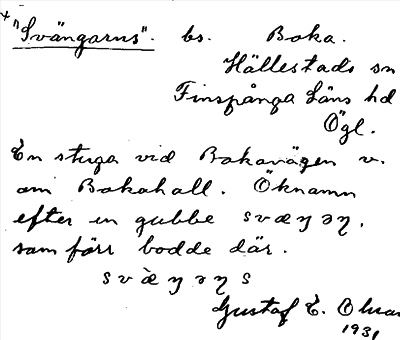 "Svängarns". bs. Boka.
Hällestads sn
Finspånga Läns hd
Ögl.
En stuga vid Bokavägen v.
om Bokahall. Öknamn
efter en gubbe svæŋəŋ.
som förr bodde där.
svæ̀ŋəŋs
Gustaf E.
1931